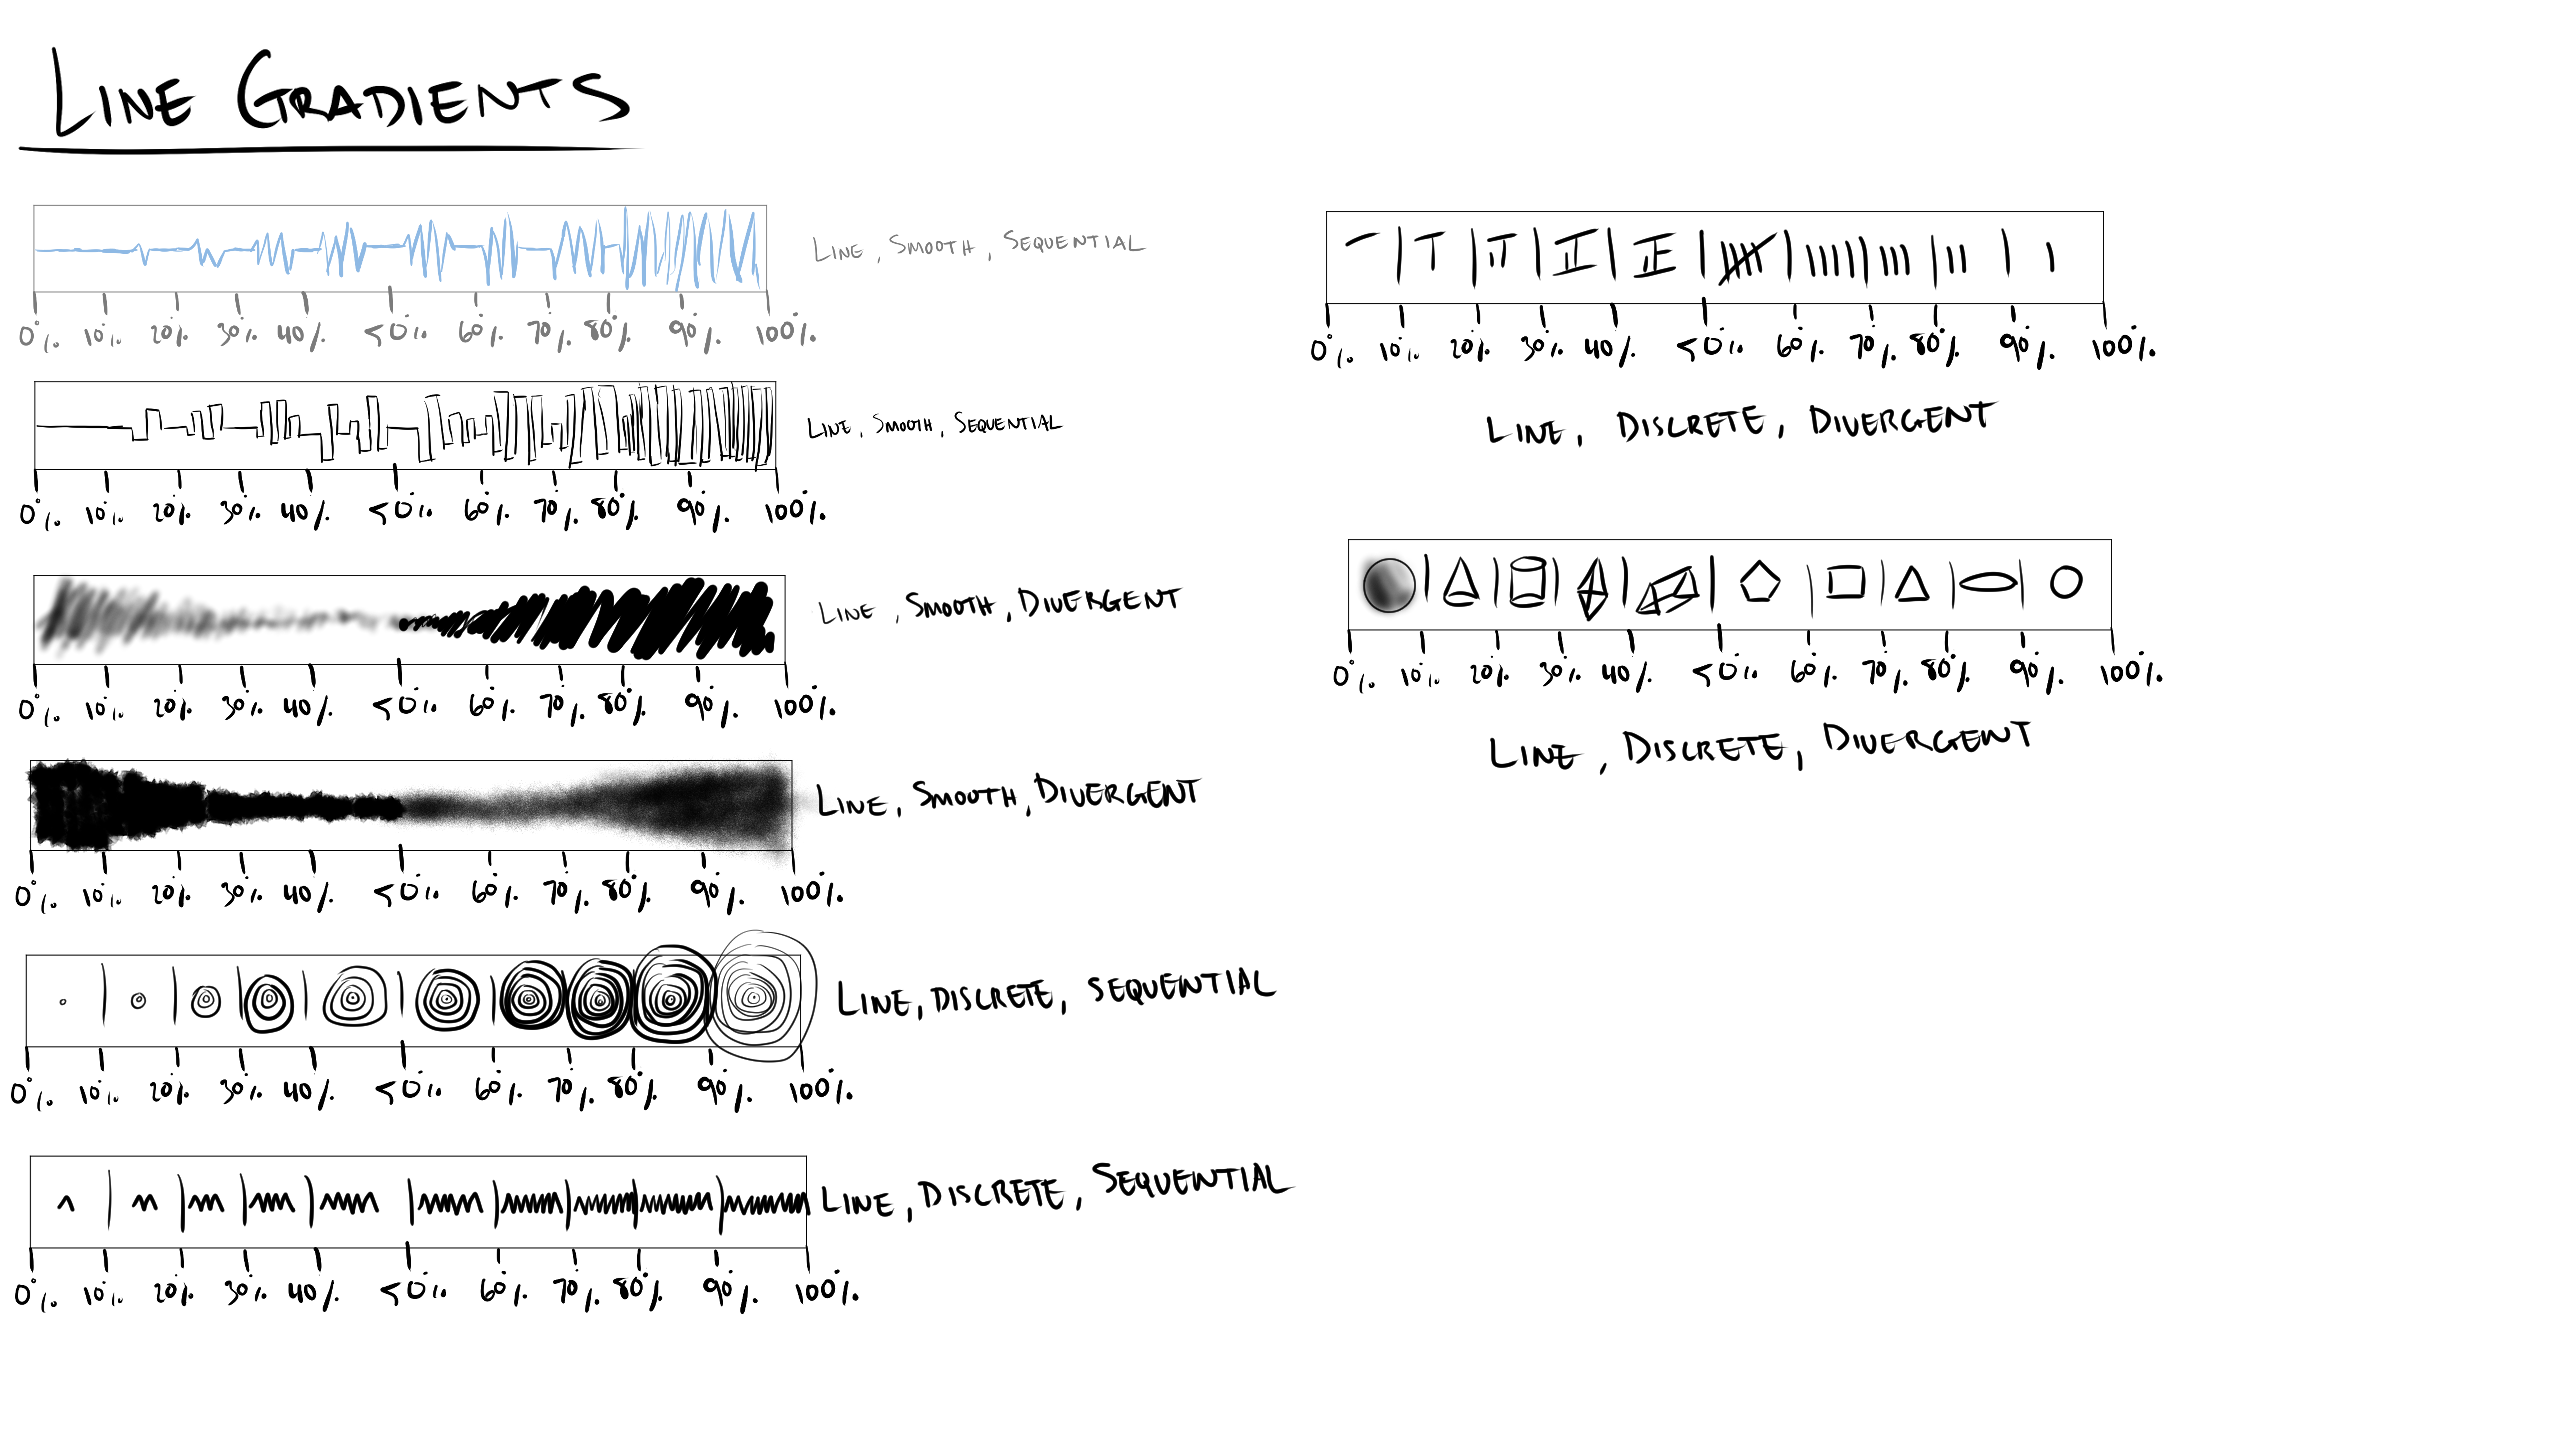 LINE GRADIENTS
LINE, SMOOTH, SEQUENTIAL
0% 10% 20% 30% 40% 50% 60% 70% 80% 90% 100%
LINE, SMOOTH, SEQUENTIAL
0% 10% 20% 30% 40% 50% 60% 70% 80% 90% 100%
LINE, SMOOTH, DIVERGENT
0% 10% 20% 30% 40% 50% 60% 70% 80% 90% 100%
LINE, SMOOTH, DIVERGENT
0% 10% 20% 30% 40% 50% 60% 70% 80% 90% 100%
LINE, DISCRETE, SEQUENTIAL
0% 10% 20% 30% 40% 50% 60% 70% 80% 90% 100%
LINE, DISCRETE, SEQUENTIAL
0% 10% 20% 30% 40% 50% 60% 70% 80% 90% 100%
0% 10% 20% 30% 40% 50% 60% 70% 80% 90% 100%
LINE, DISCRETE, DIVERGENT
0% 10% 20% 30% 40% 50% 60% 70% 80% 90% 100%
LINE, DISCRETE, DIVERGENT